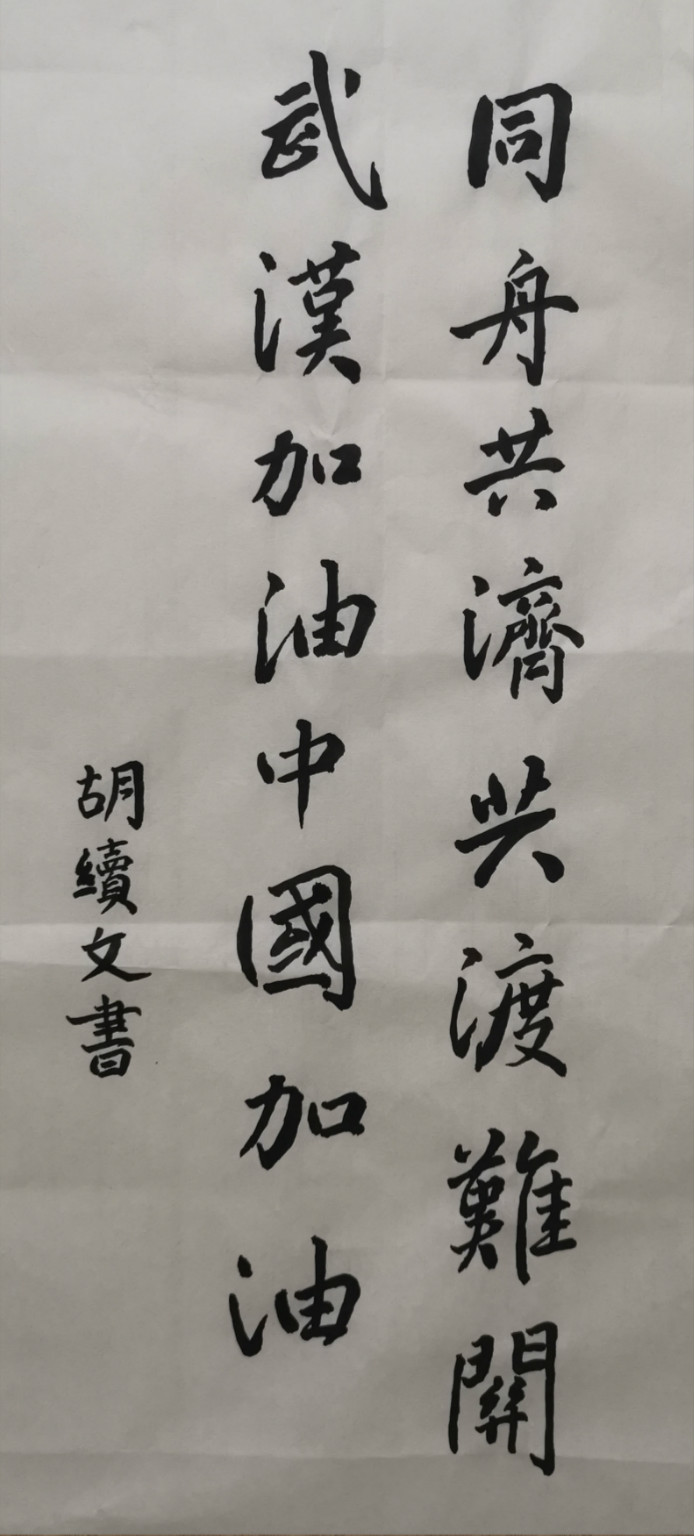 同舟共濟共渡難關
武漢加油中國加油
胡續文書